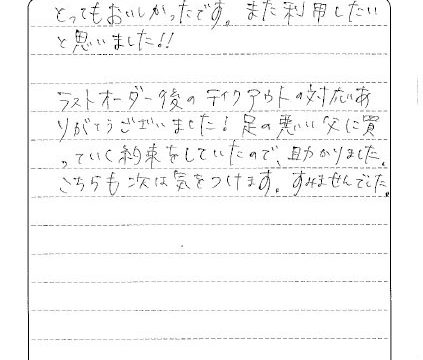 とってもおいしかったです。また利用したい
と思いました!!
ラストオーダー後のテイクアウトの対応あ
りがとうございました！足の悪い父に買
っていく約束をしていたので、助かりました。
こちらも次は気をつけます。すみませんでした。